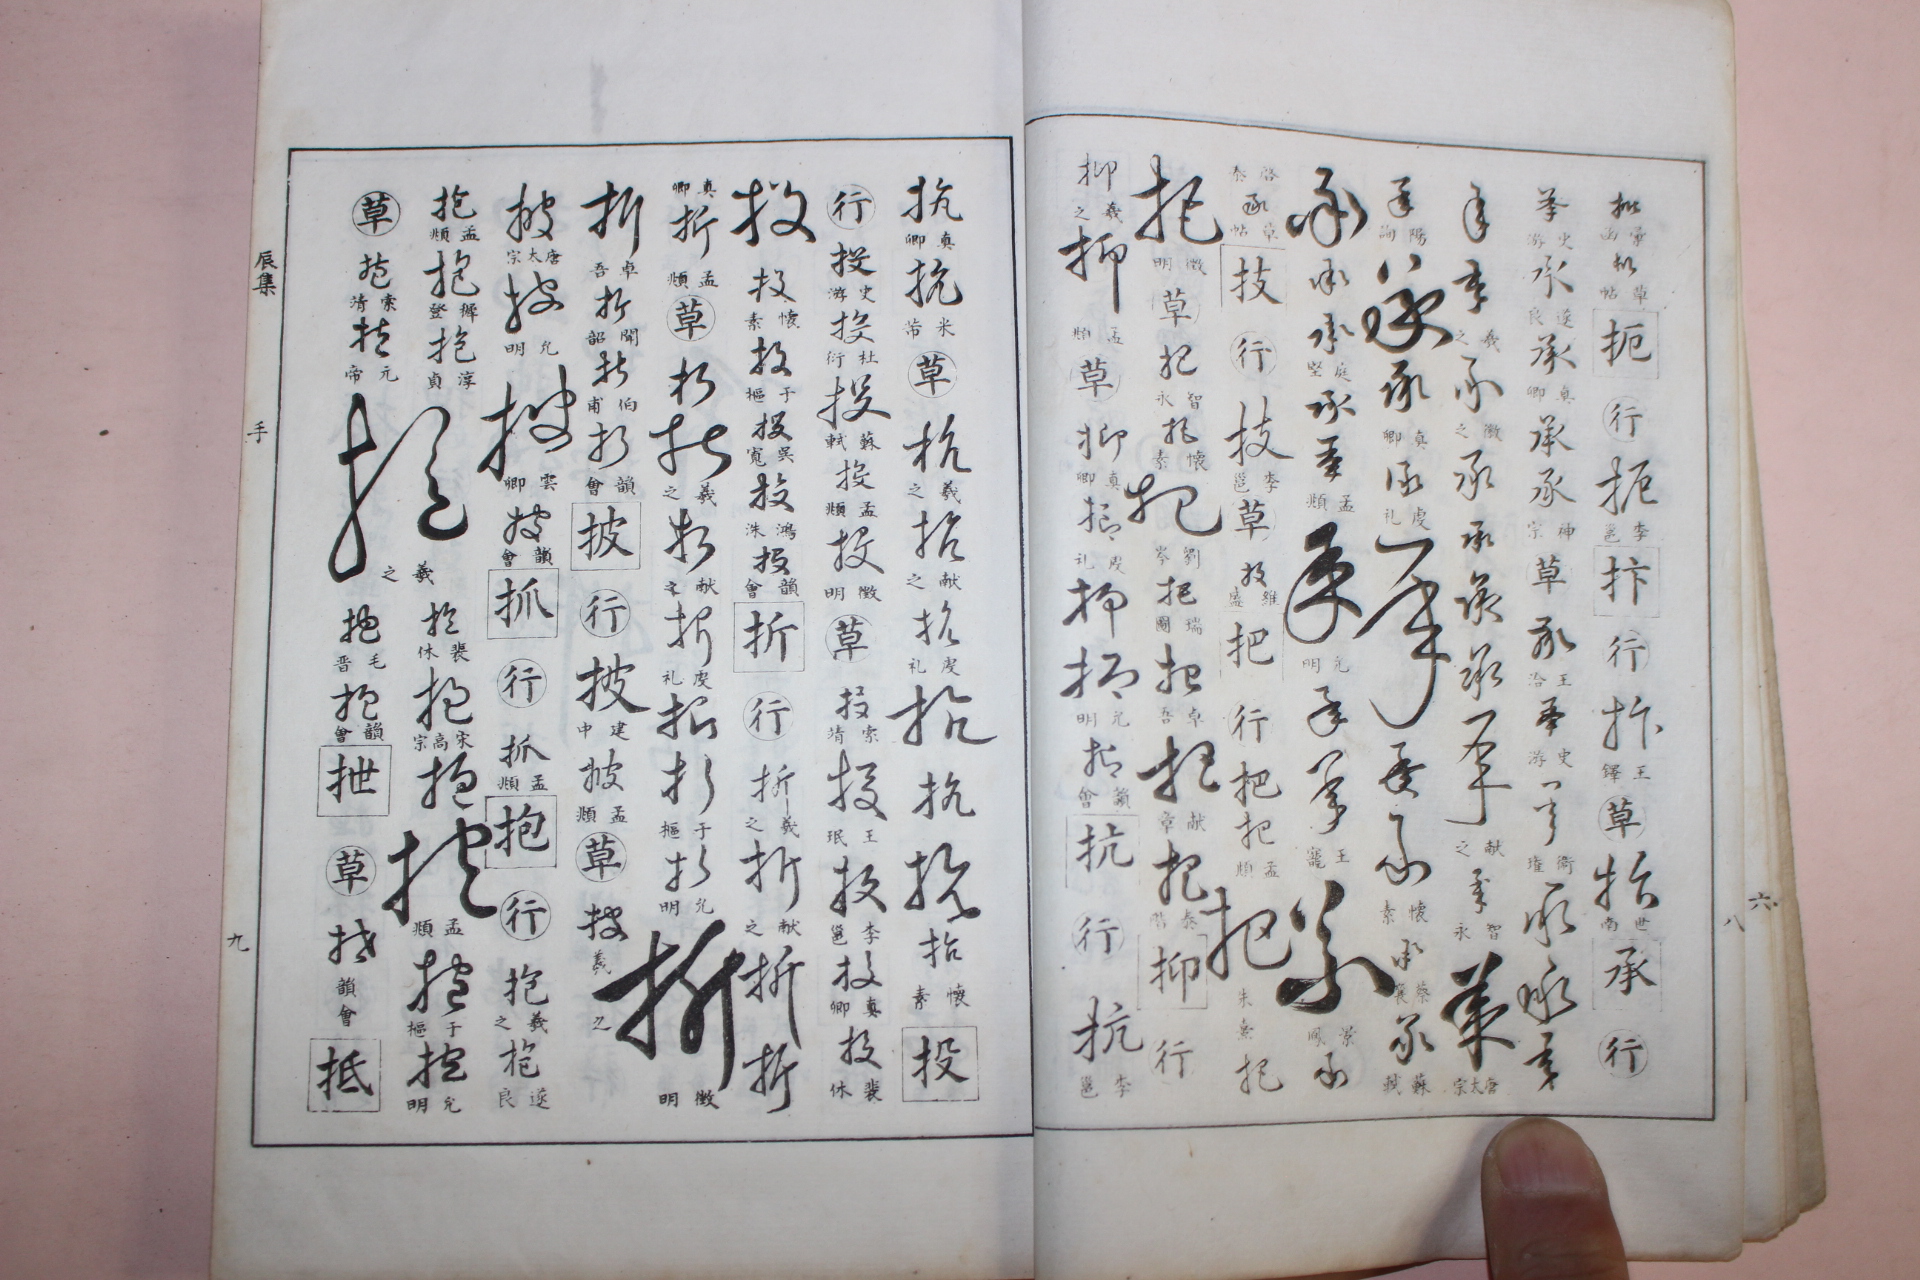 批 彙函 批 草帖 扼 行 扼 李邕 抃 行 抃 王鐸 草 抬 世南 承 行
承 史游 承 遂良 承 真卿 承 承 神宗 草 承 王洽 承 史游 承 衛瓘 承 承 承
承 承 羲之 承 徽之 承 承 承 承 承 献之 承 智永 承 唐太宗
承 陽詢 承 承 真卿 承 虔礼 承 承 承 懐素 承 蔡襄 承 蘇軾
承 承 承 庭堅 承 承 孟頫 承 允明 承 承 王寵 承 景鳳 承
啓泰 承 草帖 技 行 技 李邕 草 技 維盛 把 行 把 把 孟頫 把 朱熹 把
把 徴明 草 把 智永 把 懐素 把 劉岑 把 瑞圖 把 卓吾 把 献章 把 泰階 抑 行
抑 羲之 抑 孟頫 草 抑 真卿 抑 虔礼 抑 抑 允明 抑 韻會 抗 行 抗 李邕
抗 真卿 抗 米芾 草 抗 羲之 抗 献之 抗 虔礼 抗 抗 抗 抗 懐素 投
行 投 史游 投 杜衍 投 蘇軾 投 孟頫 投 徴明 草 投 索靖 投 王珉 投 李邕 投 真卿 投 裴休
投 投 懐素 投 于樞 投 吳寛 投 鴻洙 投 韻會 折 行 折 羲之 折 献之 折 折
真卿 折 孟頫 草 折 折 羲之 折 献之 折 虔礼 折 折 于樞 折 允明 折 徴明
折 卓吾 折 聞韶 折 伯甫 折 韻會 披 行 披 建中 披 孟頫 草 披 羲之
披 唐太宗 披 允明 披 雲卿 披 韻會 抓 行 抓 孟頫 抱 行 抱 羲之 抱 遂良
抱 孟頫 抱 登 抱 淳貞 抱 羲之 抱 裴休 抱 宋高宗 抱 抱 孟頫 抱 于樞 抱 允明
草 抱 索靖 抱 元帝 抱 毛晋 抱 韻會 抴 草 抴 韻會 抵
辰集 手 九
六 八